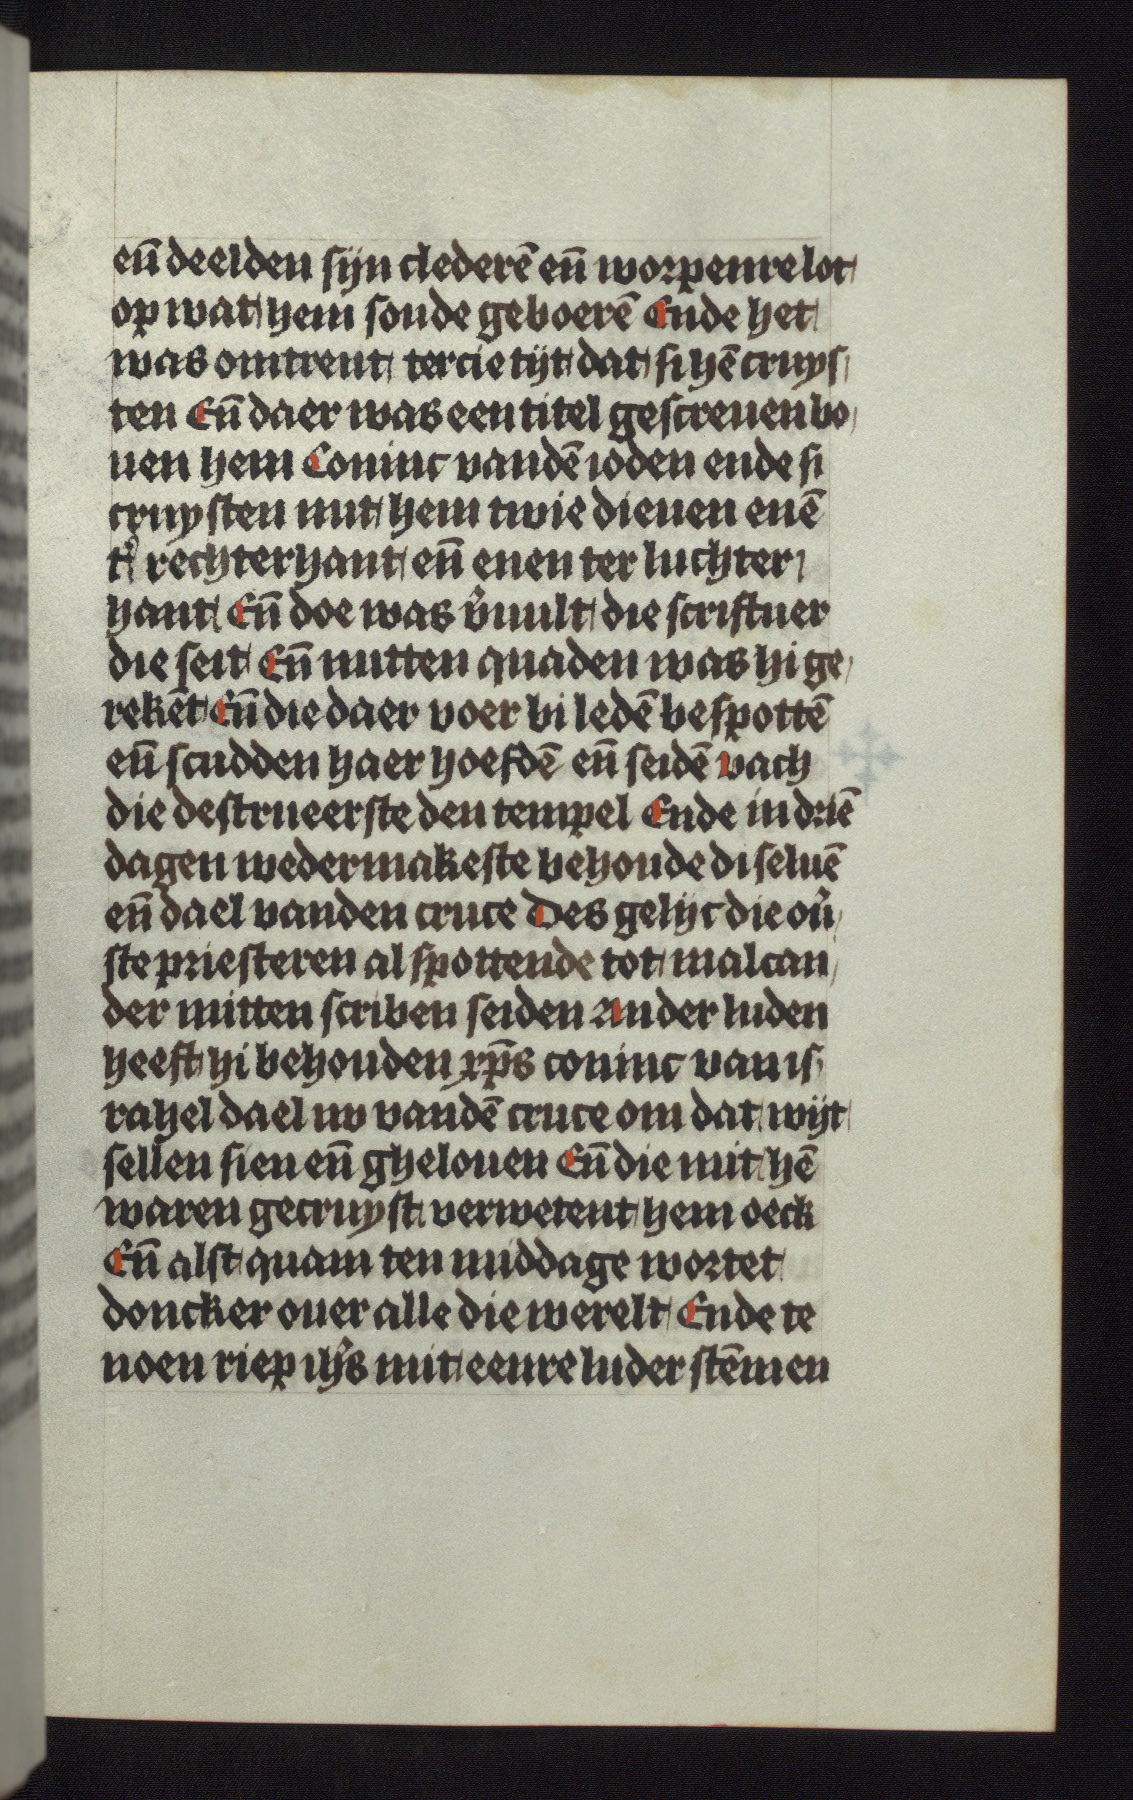 en̄ deelden sijn clederē en̄ worpenre lot
op wat hem soude geboerē Ende het
was omtrent tercie tijt dat si hē cruys
ten En̄ daer was een titel gescreuen bo
uen hem Coninc vandē ioden ende si
cruysten mit hem twie dieuen enē
t᷑ rechterhant en̄ enen ter luchter
hant En̄ doe was v᷑uult die scriftuer
die seit En̄ mitten quaden was hi ge
rekēt En̄ die daer voer bi ledē bespottē
en̄ scudden haer hoefdē en̄ seidē vach
die destrueerste den tempel Ende in driē
dagen wedermakeste behoude di seluē
en̄ dael vanden cruce Des gelijc die ou᷑
ste priesteren al spottende tot malcan
der mitten scriben seiden Ander luden
heeft hi behouden xp̄s coninc van is
rahel dael nv vandē cruce om dat wijt
sellen sien en̄ ghelouen En̄ die mit hē
waren gecruyst verwetent hem oeck
En̄ alst quam ten middage wortet
doncker ouer alle die werelt Ende te
noen riep ih̄s mit eenre luder stēmen